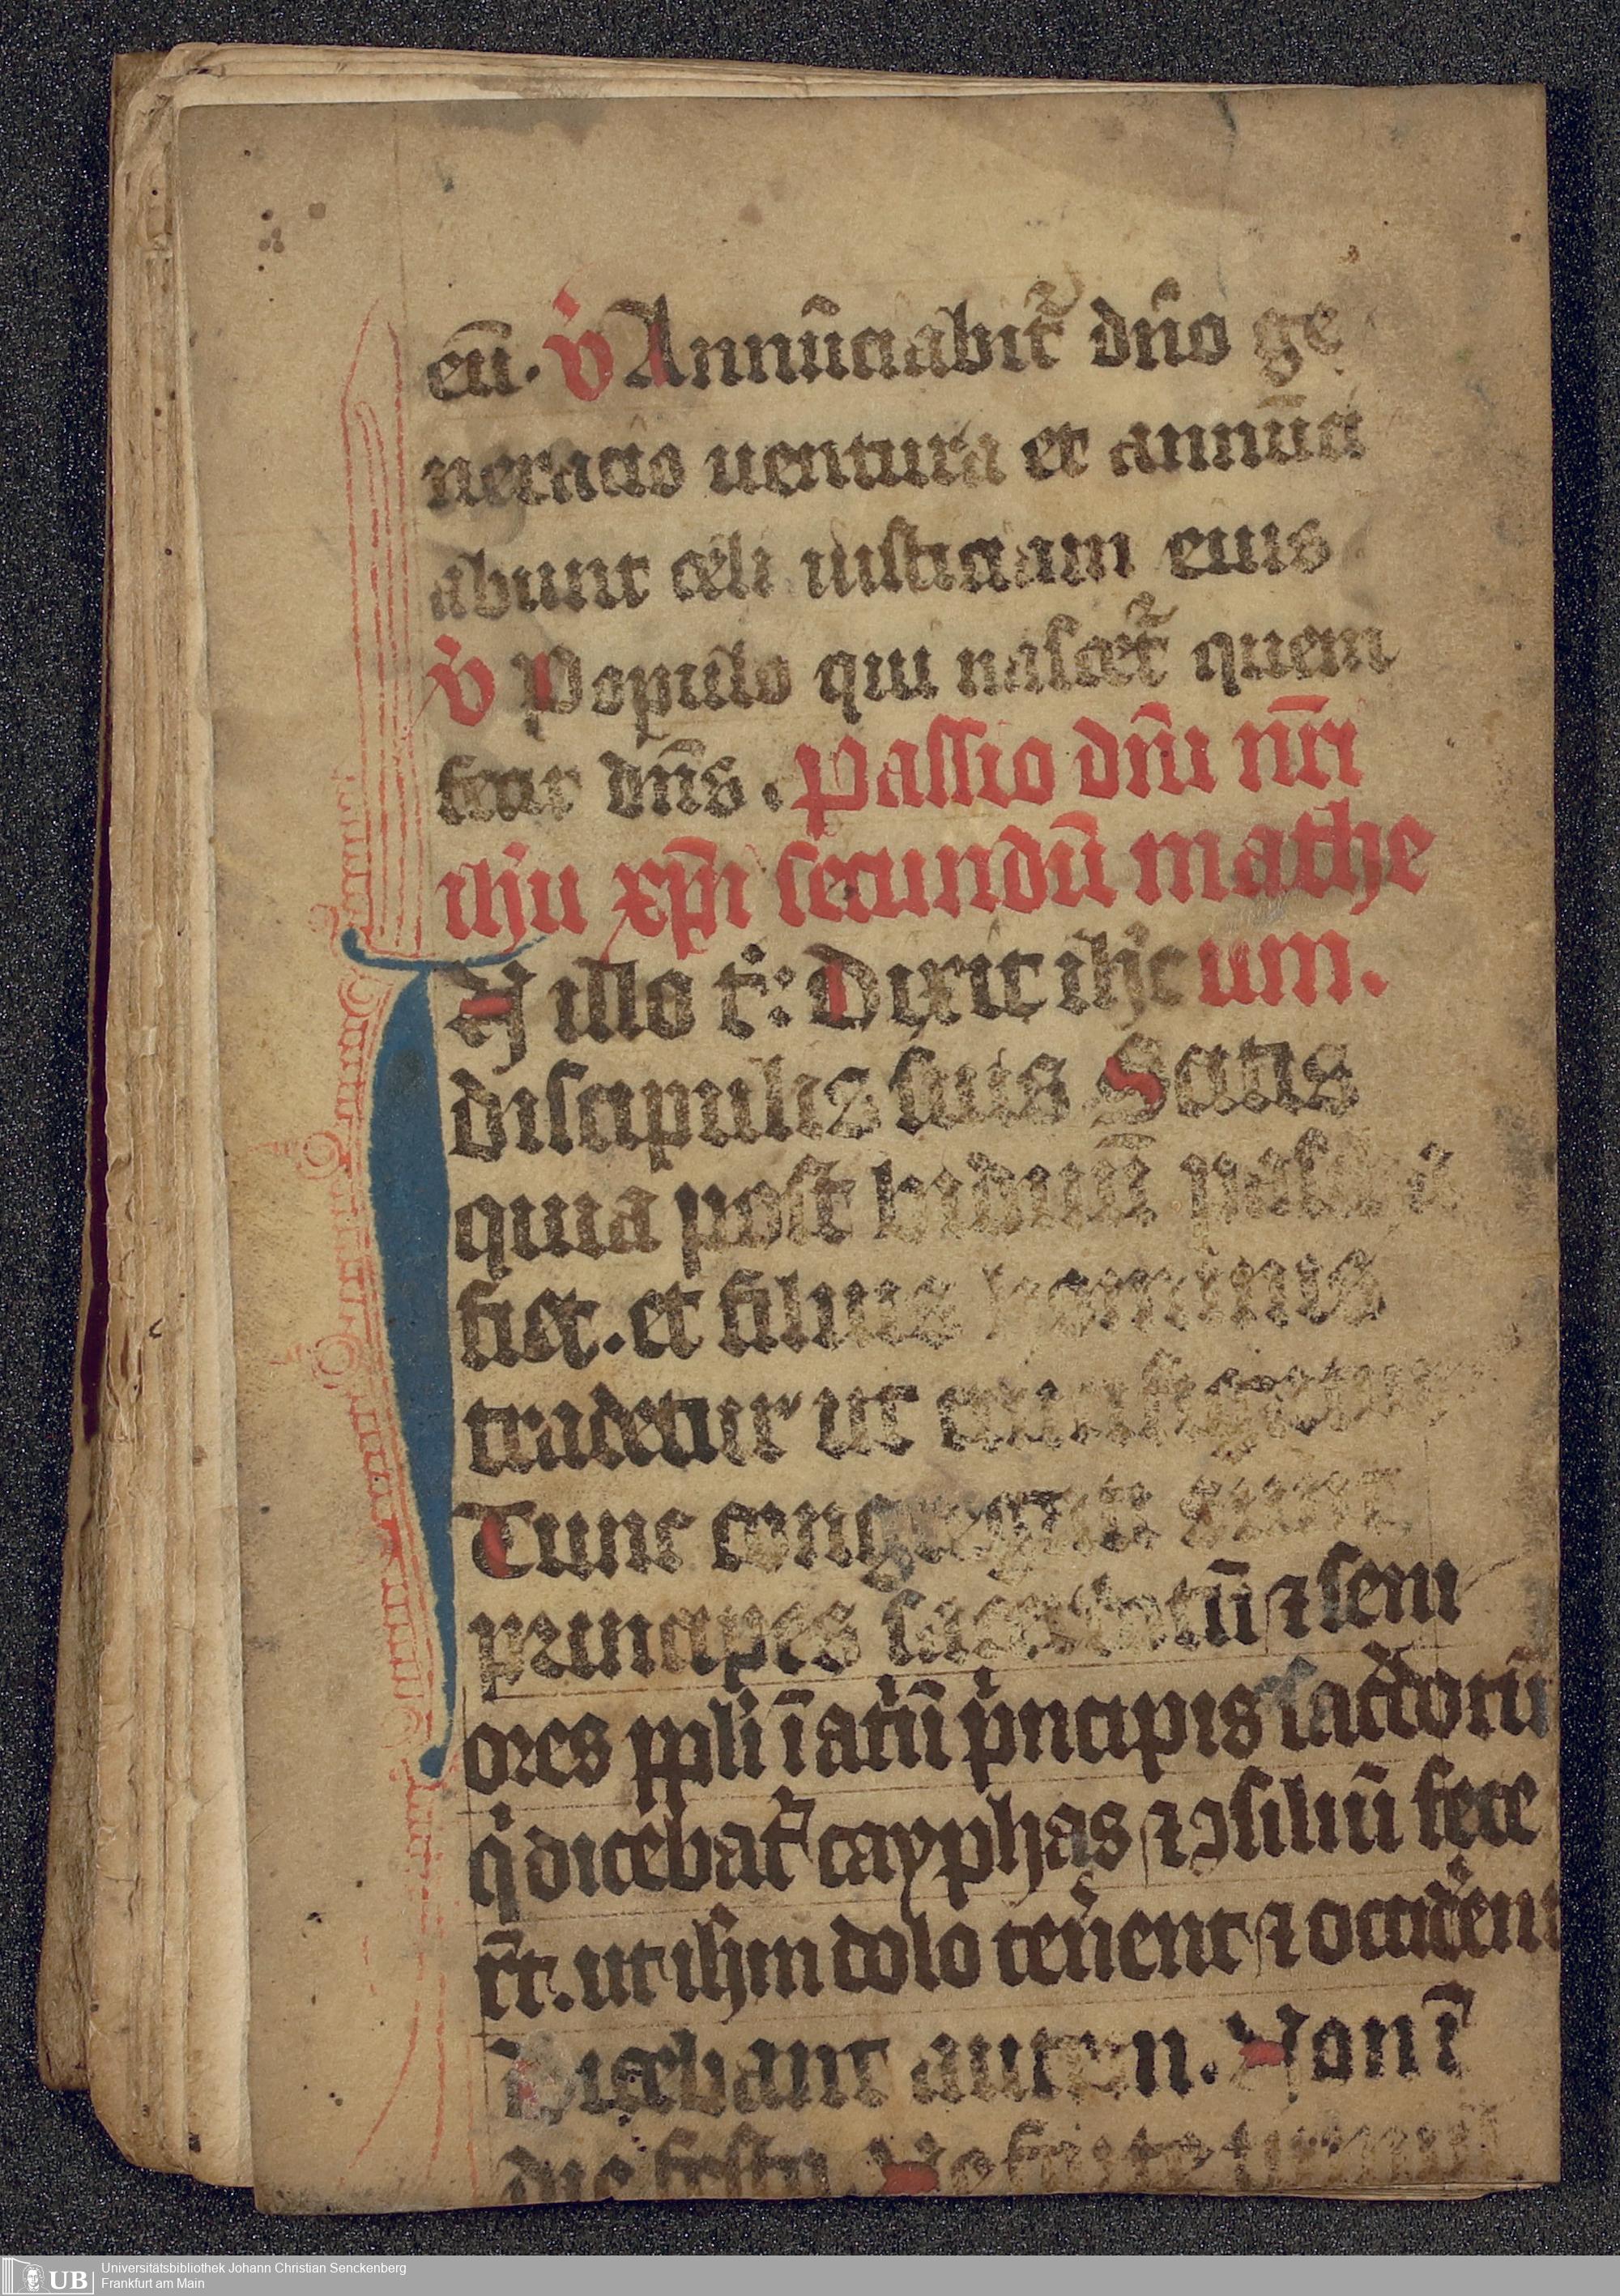 eū. v̇ Annūciabit᷑ dn̄o ge
neracio uentura et annūci
abunt celi iusticiam eius
v̇ Populo qui nascet᷑ quem
fecit dn̄s. Passio dn̄i nr̄i
ih̄u xp̄i secundū mathe
N illo t̄: Dixit ih̄c um.
discipulis suis Scitis
quia post biduū pascha
fiet. et filius hominis
tradetur ut crucifigatur
Tunc congregati sunt
principes sacerdotū ⁊ seni
ores pp̄li ī at'ū p'ncipis sac'dotū
q' dicebat᷑ cayphas ⁊ ꝯsiliū fece
rt̄. ut ih̄m dolo ten'ent ⁊ occid'ent
Dicebant autem. Non ī
die festo. Ne forte tumul
Universitätsbibliothek Johann Christian Senckenberg
UB Frankfurt am Main